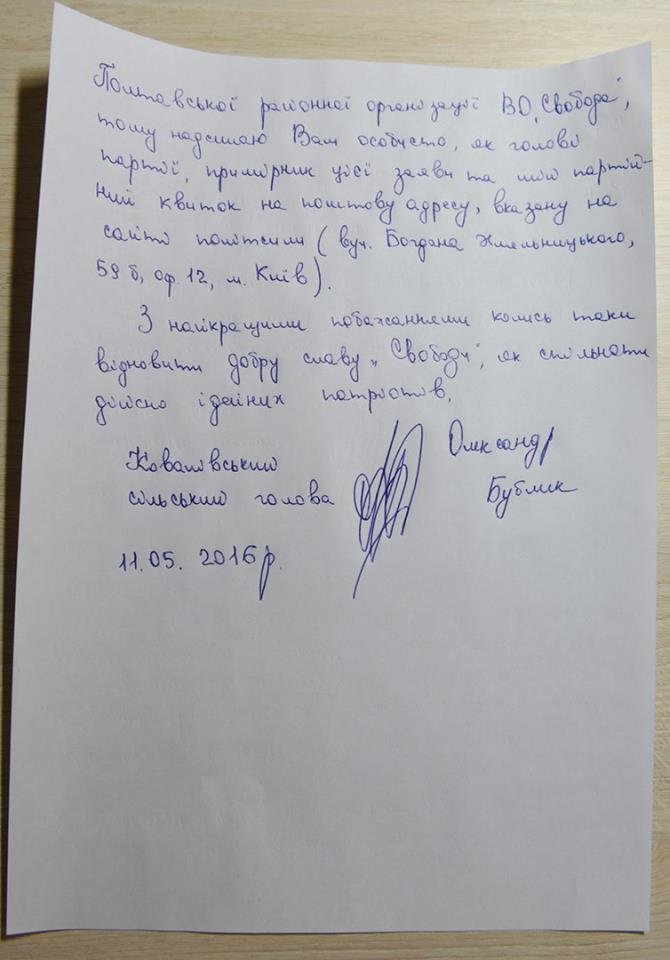 Полтавської районної організації ВО „Свобода“,
тому надсилаю Вам особисто, як голові
партії, примірник цієї заяви та мій партій-
ний квиток на поштову адресу, вказану на
сайті політсили (вул. Богдана Хмельницького,
59 б, оф. 12, м. Київ).
З найкращими побажаннями колись таки
відновити добру славу „Свободи“, як спільноти
дійсно ідейних патріотів,
Ковалівський
сільський голова
Олександр
Бублик
11.05.2016р.